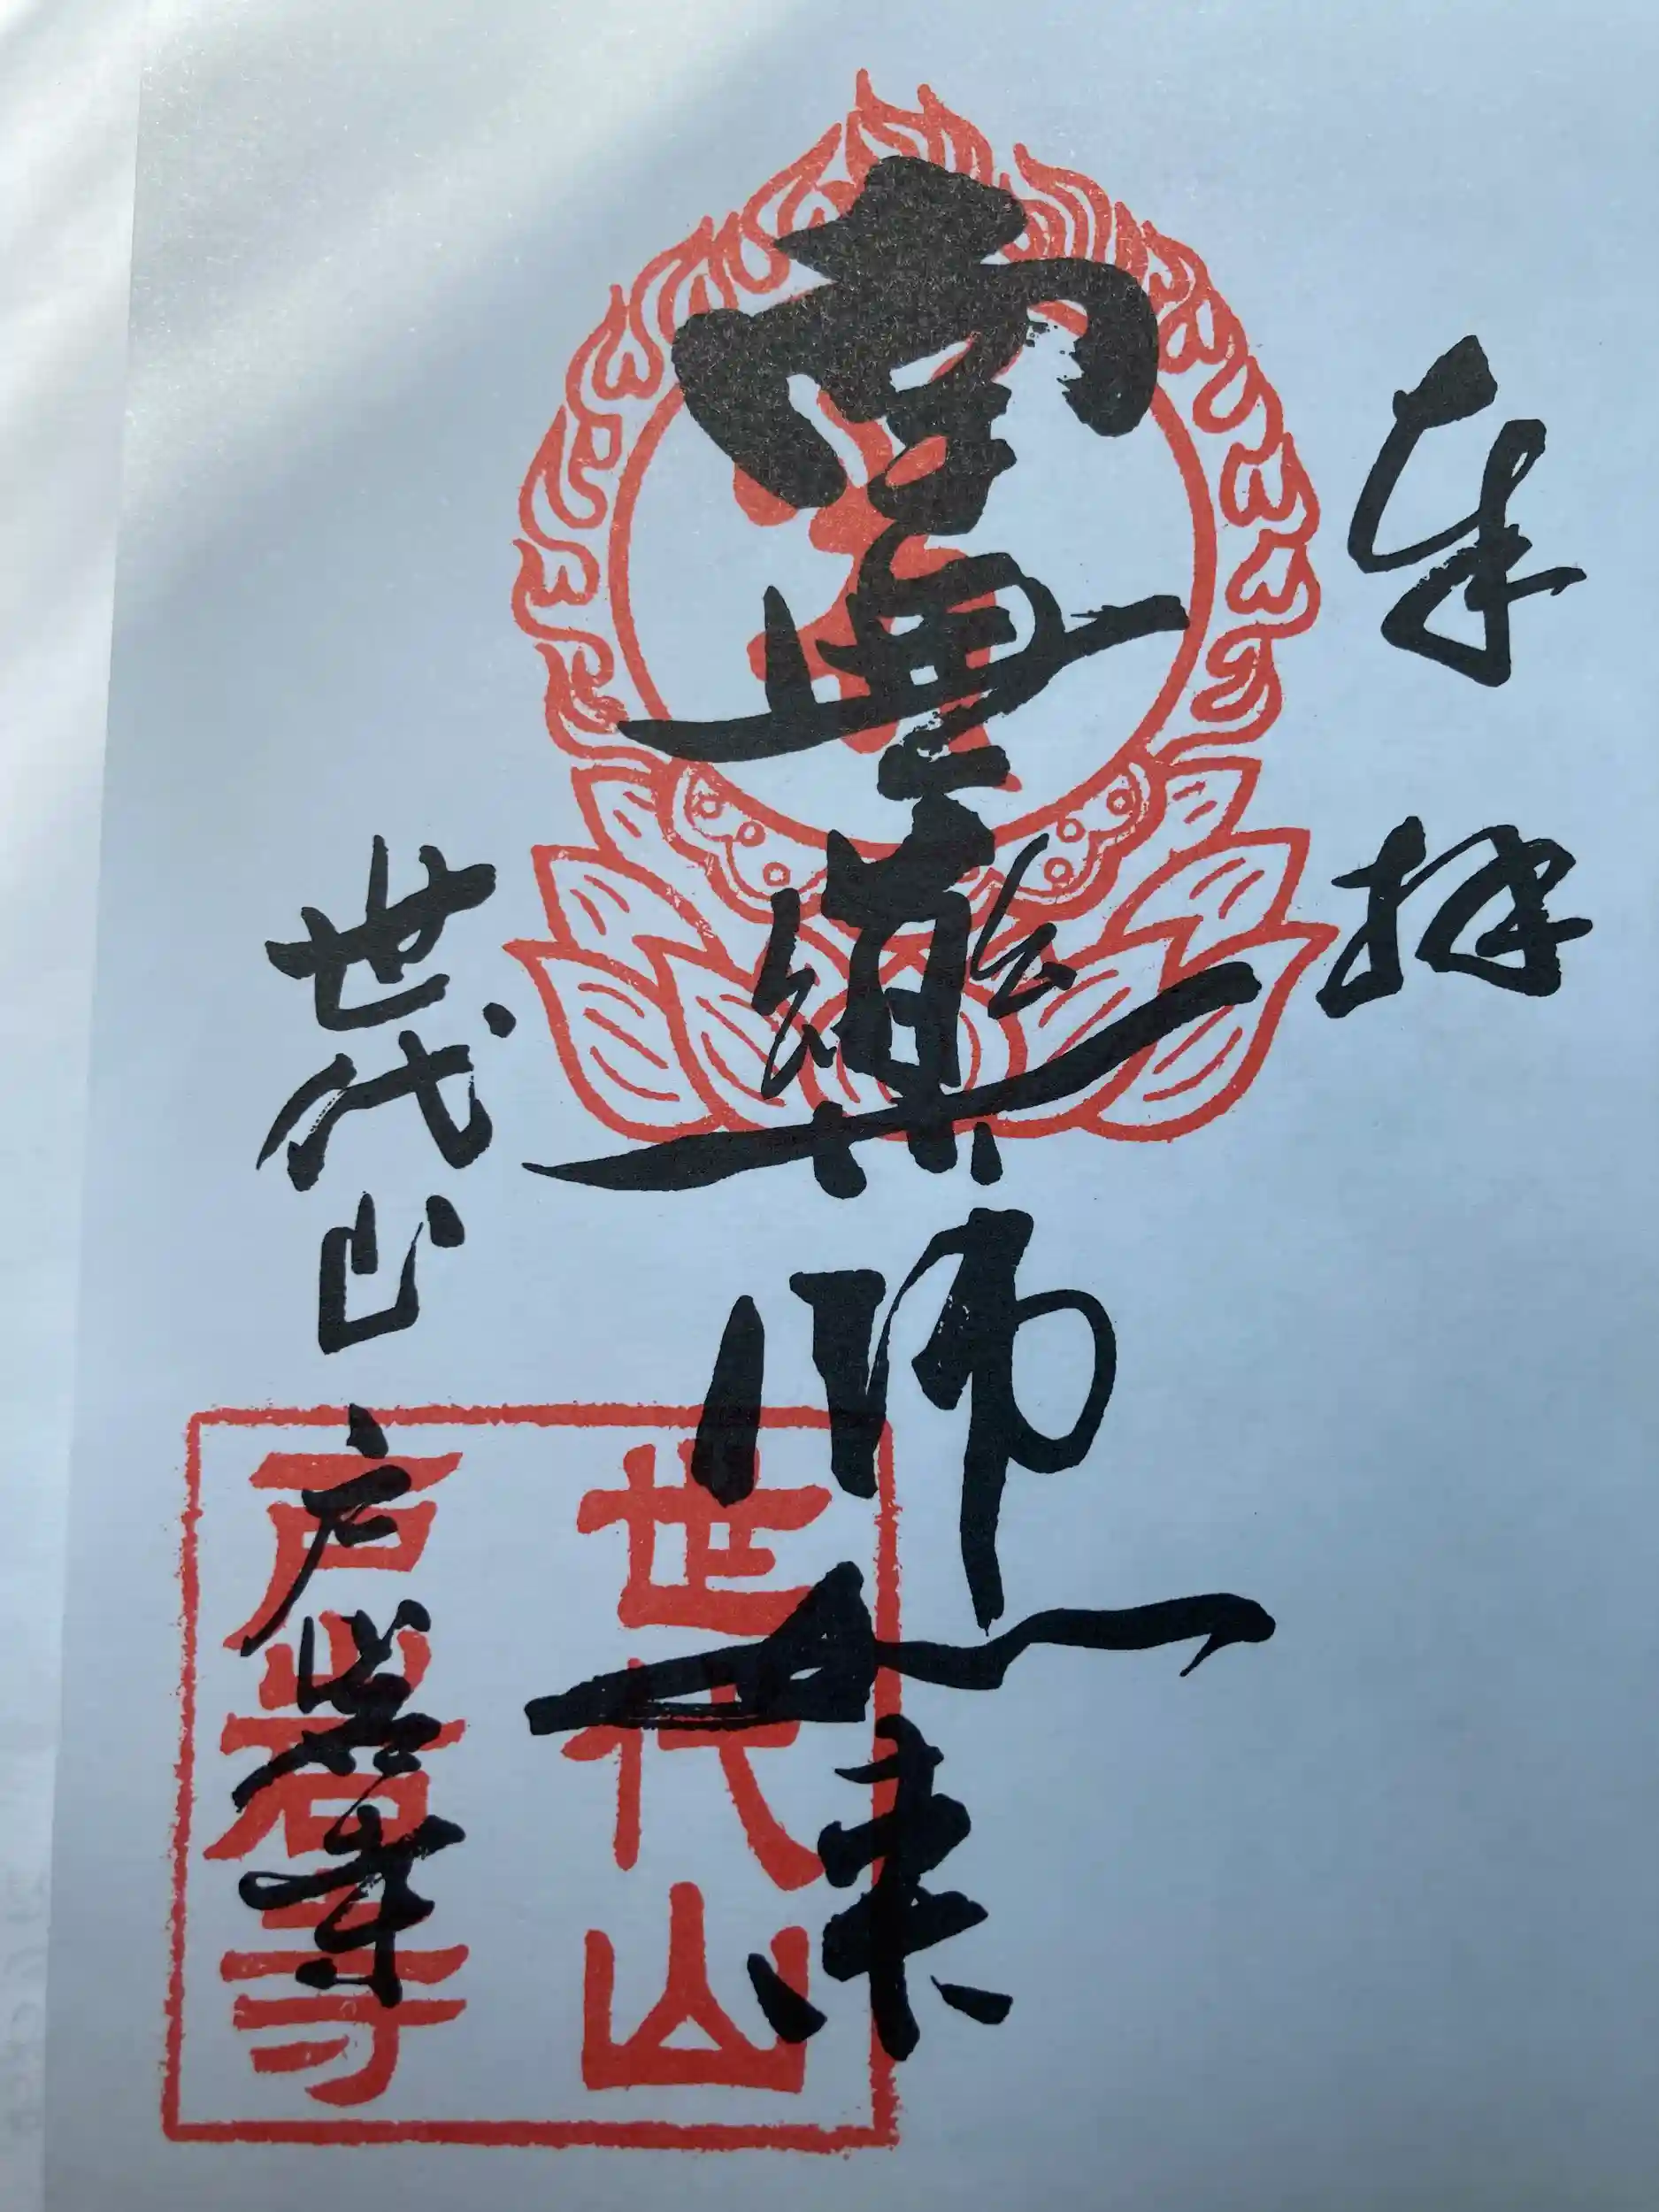 奉拝
南無薬師如来
世代山
戸岩寺
世代山
戸岩寺